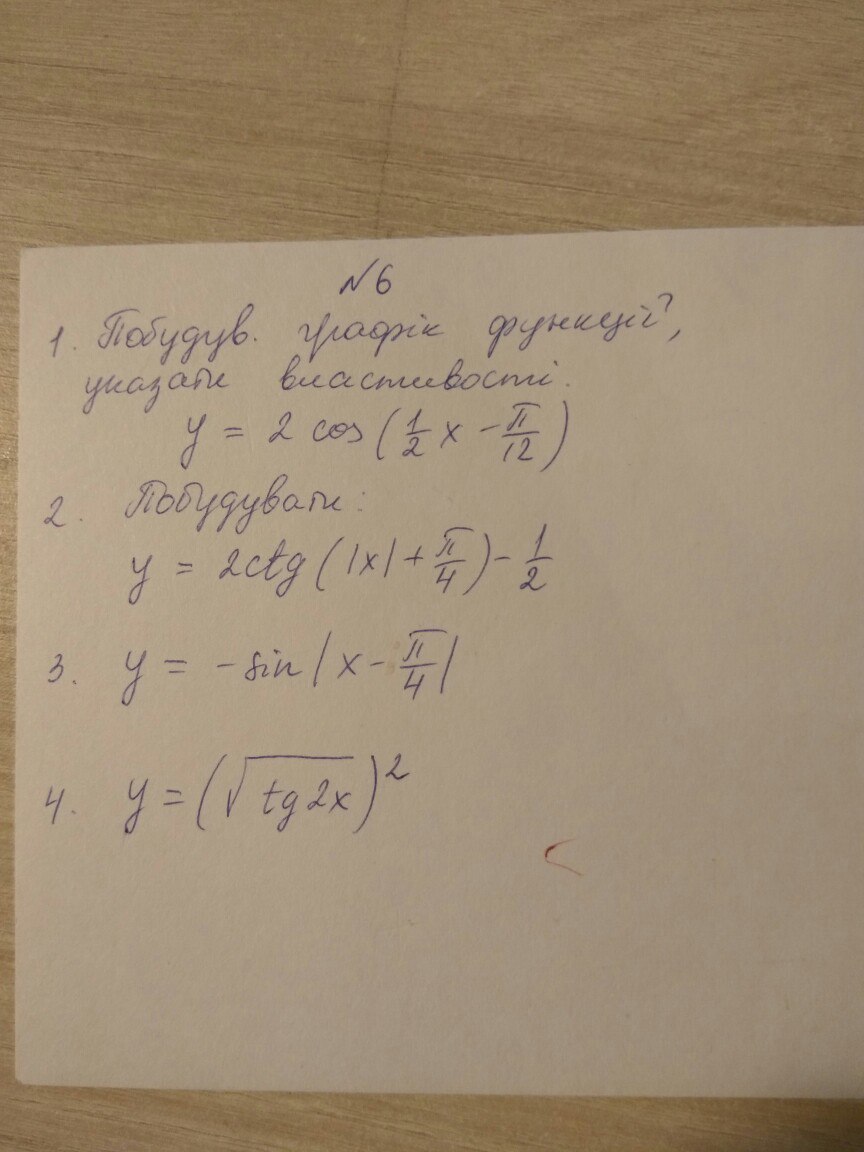 №6
1. Побудув. графік функції,
указати властивості.
y = 2 cos(1/2 x - π/12)
2. Побудувати:
y = 2ctg(|x| + π/4) - 1/2
3. y = -sin|x - π/4|
4. y = (√tg2x)²